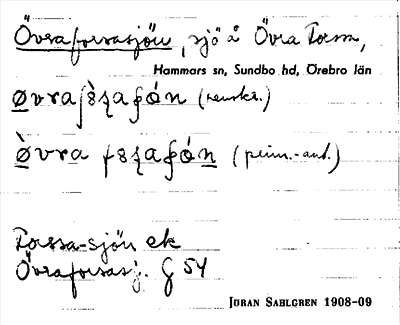 Övraforsasjön, sjö å Övra Forsa,
Hammars sn, Sundbo hd, Örebro län
(renskr.)
(prim.-ant.)
Forssa-sjön ek
Övraforsasj. G 54
JÖRAN SAHLGREN 1908-09